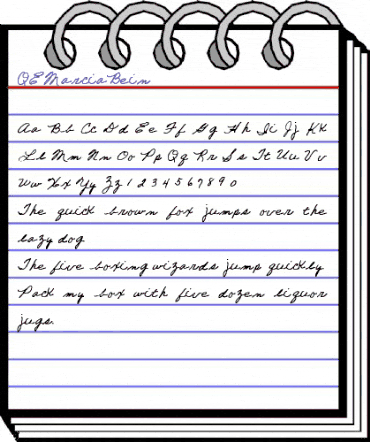 QEMarciaBeim
Aa Bb Cc Dd Ee Ff Gg Hh Ii Jj Kk
Ll Mm Nn Oo Pp Qq Rr Ss Tt Uu Vv
Ww Xx Yy Zz 1 2 3 4 5 6 7 8 9 0
The quick brown fox jumps over the
lazy dog
The five boxing wizards jump quickly
Pack my box with five dozen liquor
jugs.